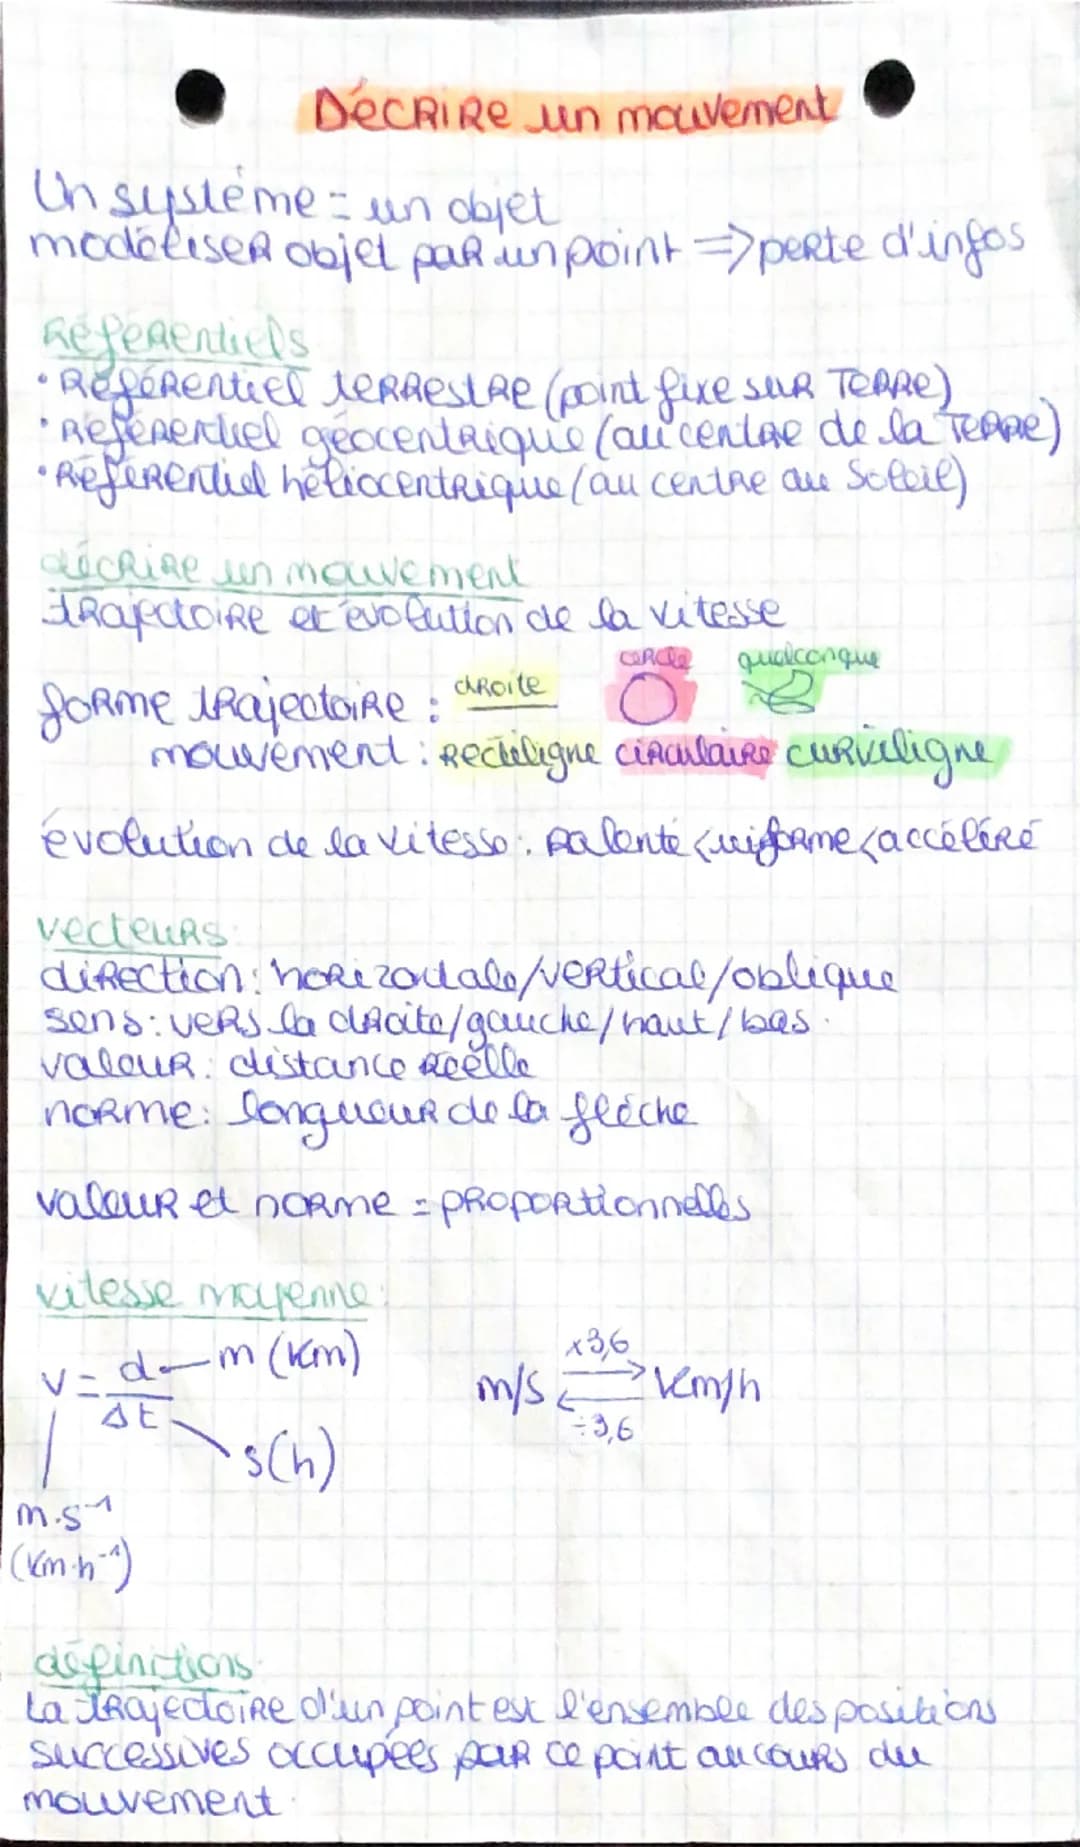 Décrire un mouvement
Un système = un objet
modéliser objet par un point => perte d'infos
Référentiels
• Référentiel terrestre (point fixe sur Terre)
• Référentiel géocentrique (au centre de la Terre)
• Référentiel héliocentrique (au centre du Soleil)
décrire un mouvement
trajectoire et évolution de la vitesse
cercle quelconque
forme trajectoire : droite
mouvement : rectiligne circulaire curviligne
évolution de la vitesse : ralenti < uniforme < accéléré
vecteurs
direction : horizontale/vertical/oblique
sens : vers la droite/gauche/haut/bas
valeur : distance réelle
norme : longueur de la flèche
valeur et norme = proportionnelles
vitesse moyenne :
v = d/Δt m (km)
s (h)
m.s⁻¹
(km.h⁻¹)
x3,6
m/s ⇄ km/h
÷3,6
définitions
La trajectoire d'un point est l'ensemble des positions
successives occupées par ce point au cours du
mouvement.